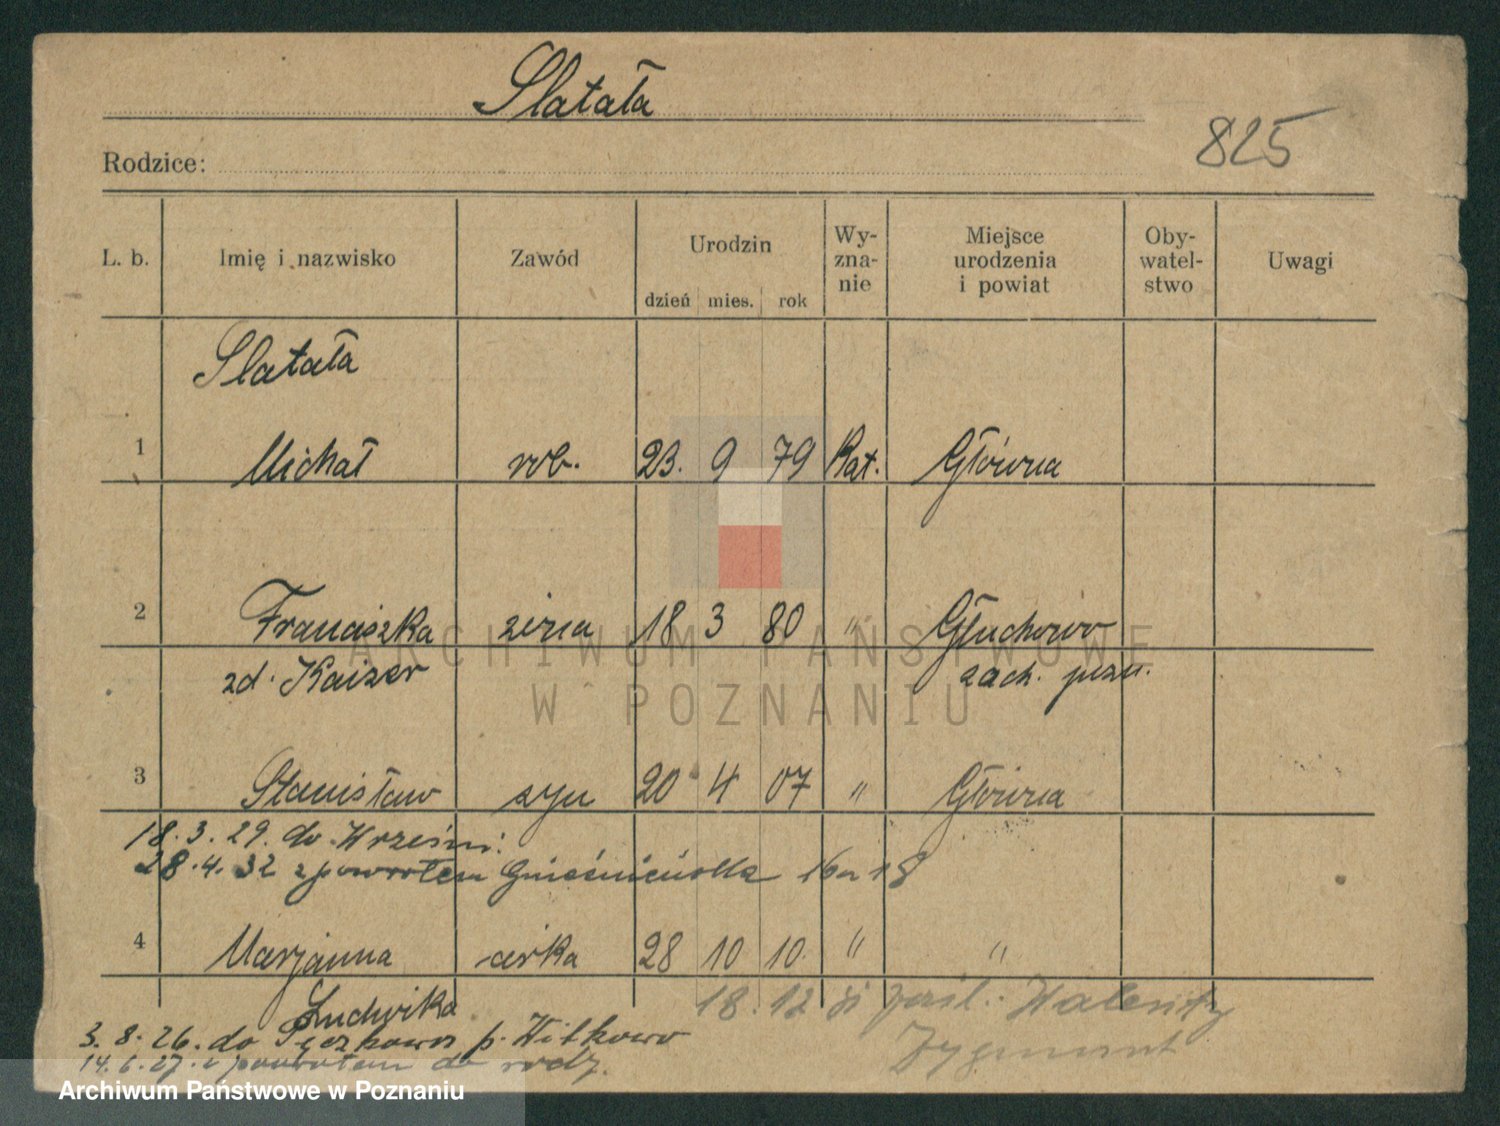 Slatała
825
Rodzice:
L. b. Imię i nazwisko Zawód Urodzin dzień mies. rok Wy-zna-nie Miejsce urodzenia i powiat Oby-watel-stwo Uwagi
Slatała
1 Michał rob. 23. 9 79 Kat. Główna
2 Franciszka żona 18 3 80 " Głuchowo
zd. Kaizer zach. pozn.
3 Stanisław syn 20 4 07 " Główna
18. 3. 29. do Wrześni.
28. 4. 32 z powrotem Gnieźnieńska 16 m 18
4 Marjanna córka 28 10 10. " "
Ludwika 18. 12 Walenty
3. 8. 26. do p. Witkowo Zygmunt
14. 6. 27. z powrotem do rodz.
ARCHIWUM PAŃSTWOWE
W POZNANIU
Archiwum Państwowe w Poznaniu